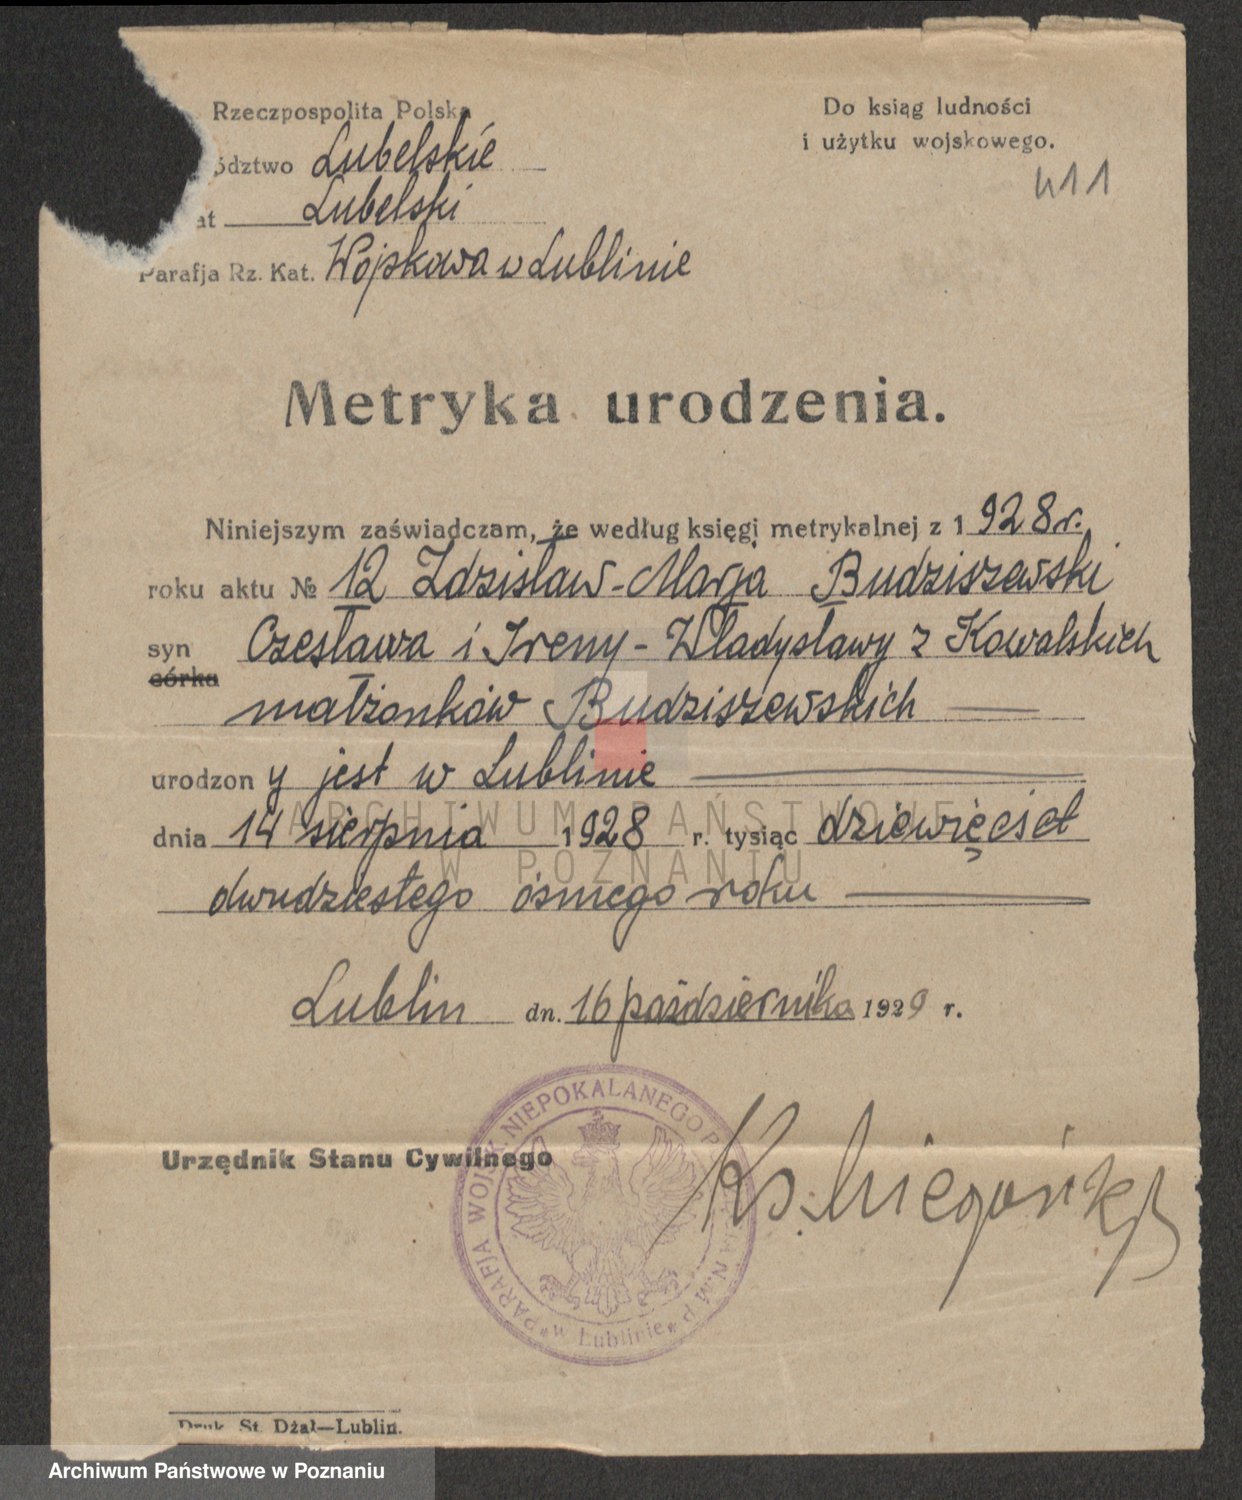 Rzeczpospolita Polska
Do ksiąg ludności
i użytku wojskowego.
ództwo Lubelskie
411
at Lubelski
Parafja Rz. Kat. Wojskowa w Lublinie
Metryka urodzenia.
Niniejszym zaświadczam, że według księgi metrykalnej z 1928 r.
roku aktu № 12 Zdzisław-Marja Budziszewski
syn Czesława i Ireny-Władysławy z Kowalskich
córka
małżonków Budziszewskich
urodzony jest w Lublinie
dnia 14 sierpnia 1928 r. tysiąc dziewięćset
dwudziestego ósmego roku
Lublin dn. 16 października 1929 r.
Urzędnik Stanu Cywilnego
PARAFJA WOJSK. NIEPOKALANEGO N.M.P.
w Lublinie
Ks.
Druk. St. Dżał—Lublin.
ARCHIWUM PAŃSTWOWE
W POZNANIU
Archiwum Państwowe w Poznaniu